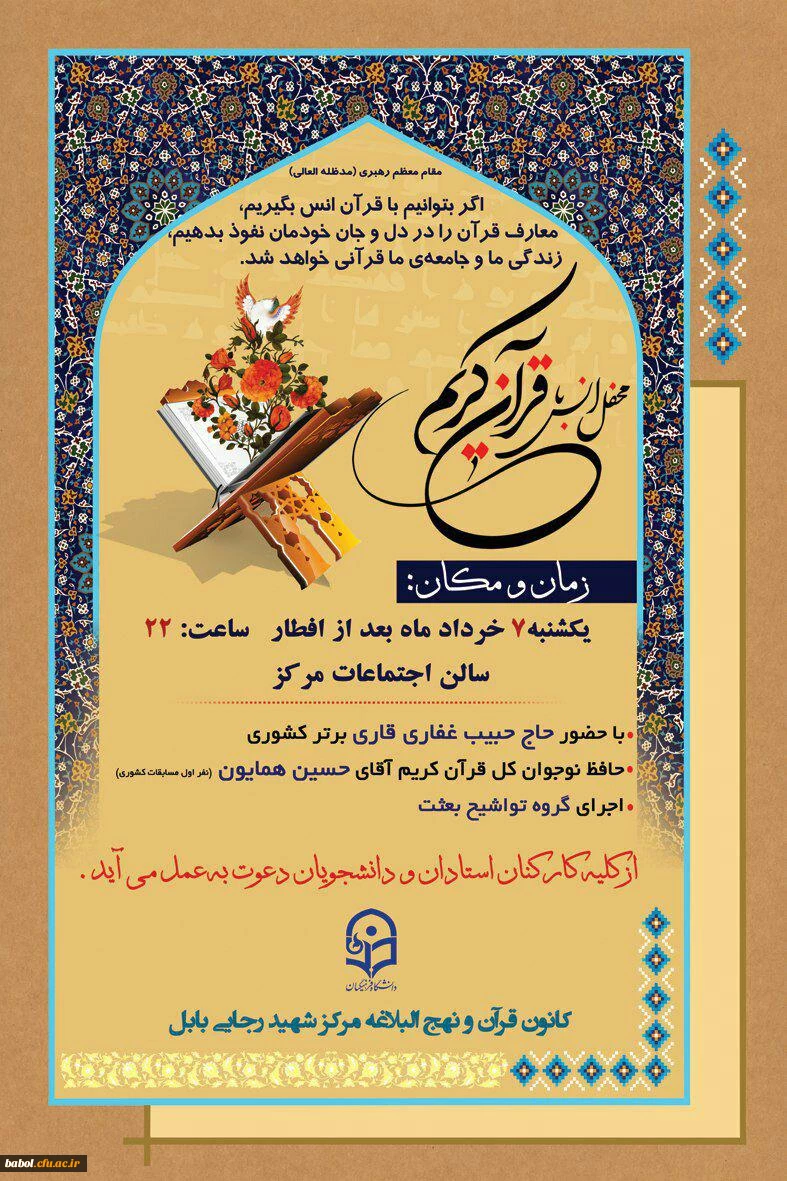 مقام معظم رهبری (مدظله العالی)
اگر بتوانیم با قرآن انس بگیریم،
معارف قرآن را در دل و جان خودمان نفوذ بدهیم،
زندگی ما و جامعه‌ی ما قرآنی خواهد شد.
محفل انس با قرآن کریم
زمان و مکان:
یکشنبه ۷ خرداد ماه بعد از افطار ساعت: ۲۲
سالن اجتماعات مرکز
•با حضور حاج حبیب غفاری قاری برتر کشوری
•حافظ نوجوان کل قرآن کریم آقای حسین همایون (نفر اول مسابقات کشوری)
•اجرای گروه تواشیح بعثت
از کلیه کارکنان استادان و دانشجویان دعوت به عمل می آید .
دانشگاه فرهنگیان
کانون قرآن و نهج البلاغه مرکز شهید رجایی بابل
babol.cfu.ac.ir